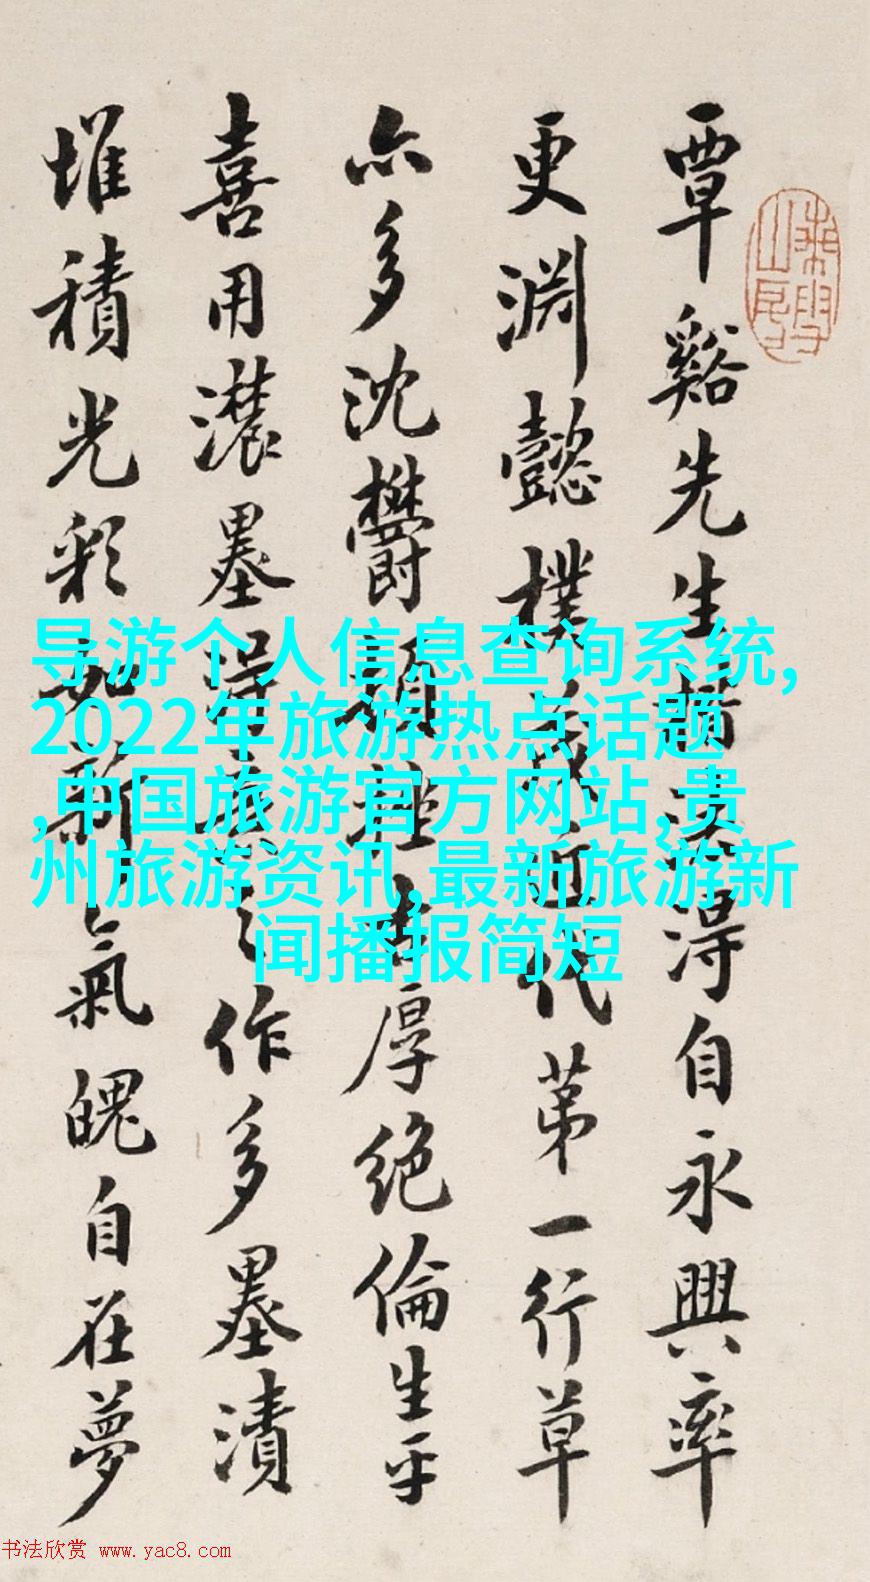 覃谿先生書法淂自永興率
更渊懿樸茂近代苐一行草
亦多沈欝頓挫古厚绝倫生平
喜用濃墨得意之作多墨漬
堆積光彩如新氣魄自在夢
导游个人信息查询系统,
2022年旅游热点话题
,中国旅游官方网站,贵
州旅游资讯,最新旅游新
闻播报简短
书法欣赏 www.yac8.com